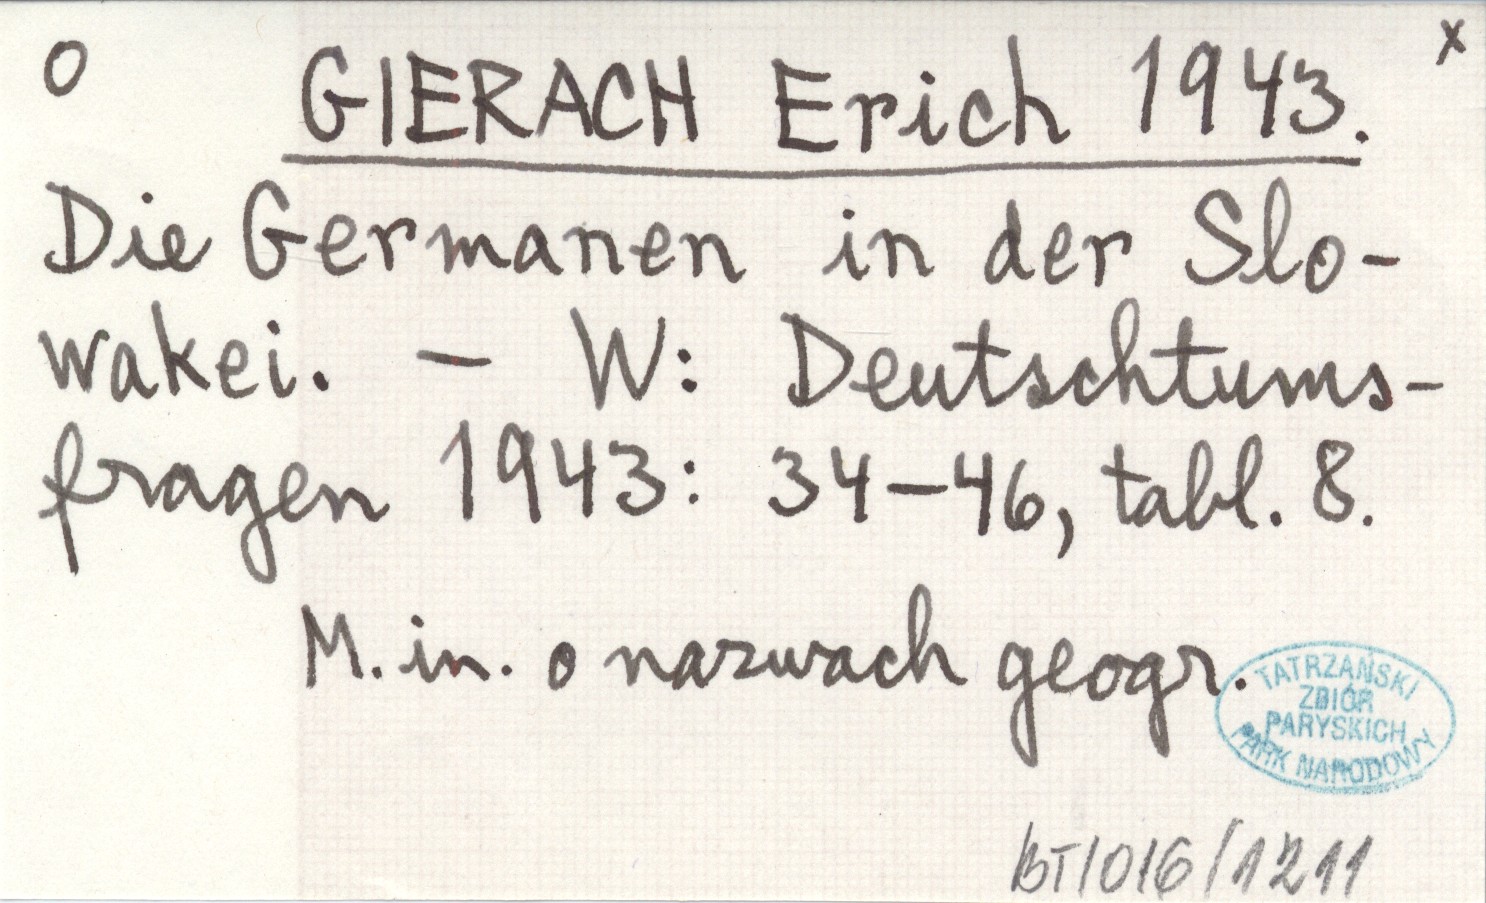 O GIERACH Erich 1943. x
Die Germanen in der Slo-
wakei. – W: Deutschtums-
fragen 1943: 34–46, tabl. 8.
M. in. o nazwach geogr.
TATRZAŃSKI
ZBIÓR
PARYSKICH
PARK NARODOWY
BT/016/1211